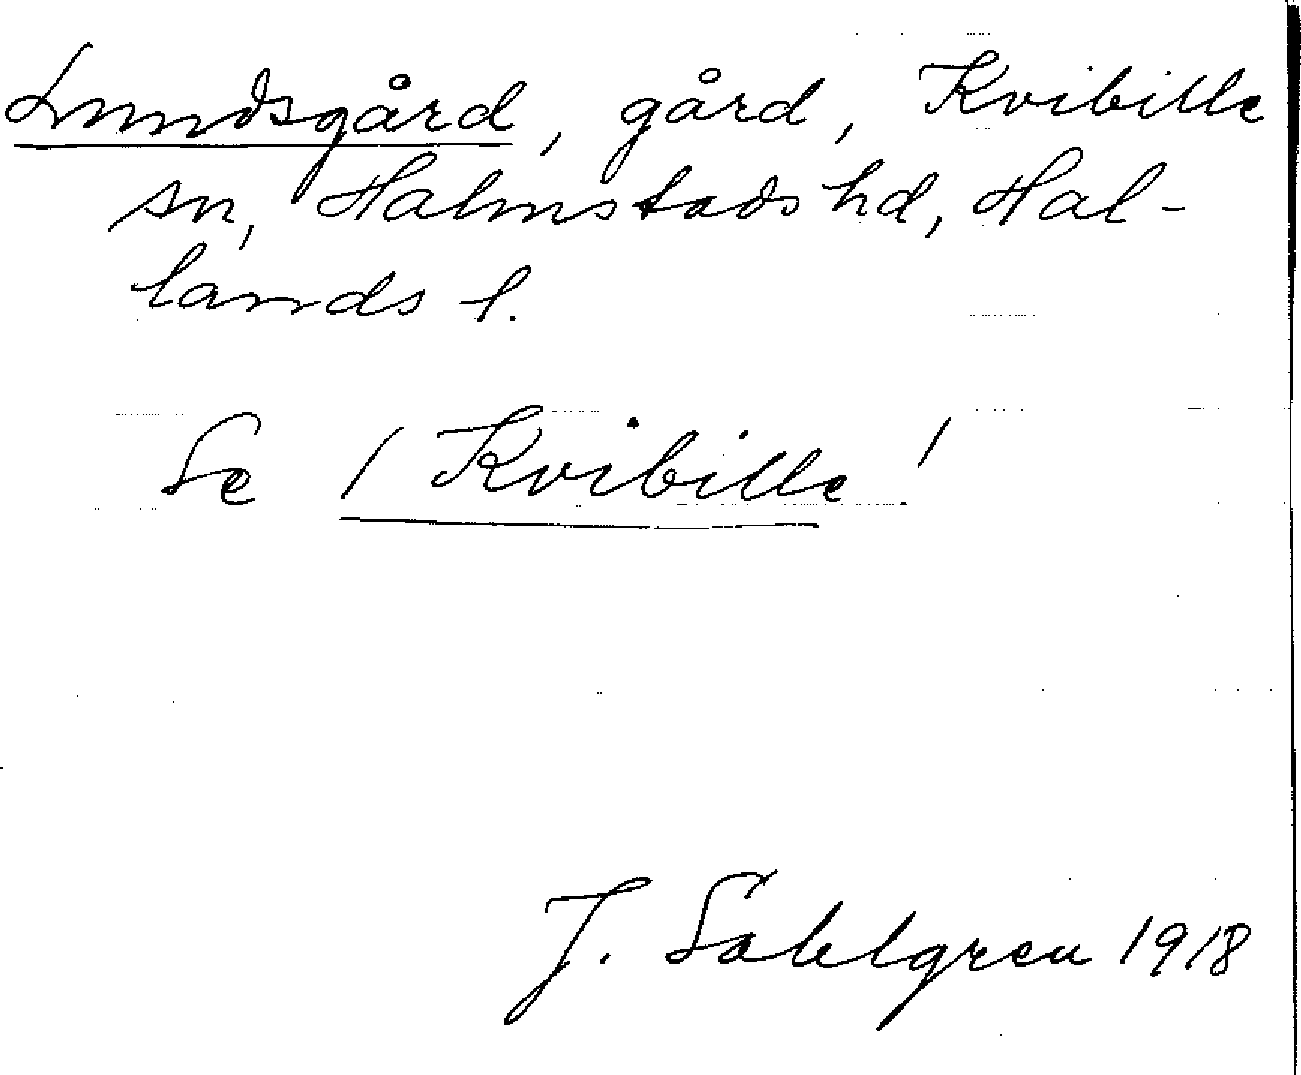 Lundsgård, gård, Kvibille
sn, Halmstads hd, Hal-
lands l.
Se 1 Kvibille!
J. Sahlgren 1918